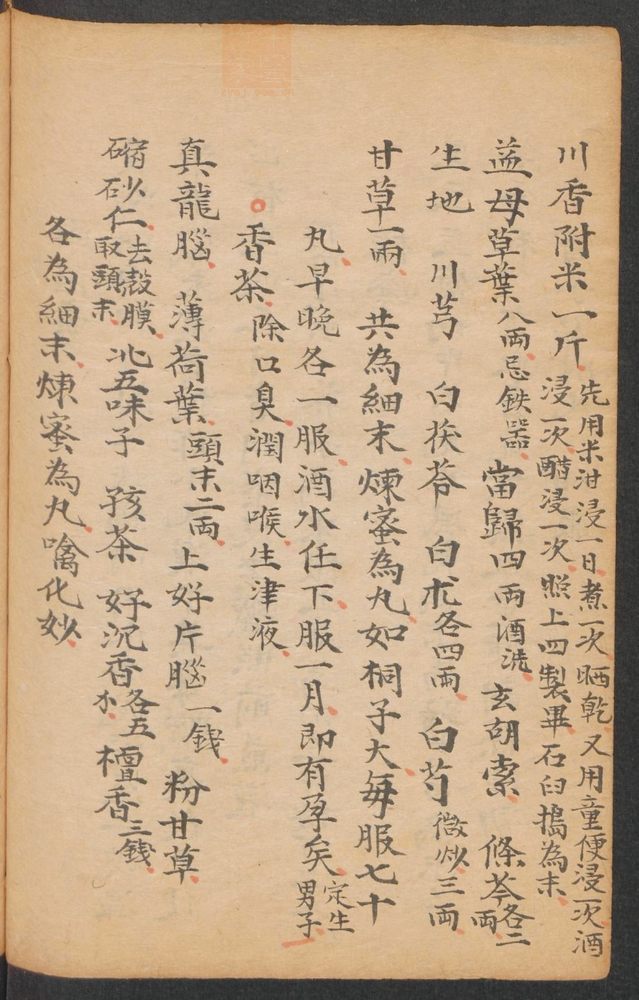 川香附米一斤先用米泔浸一日煮一次晒乾又用童便浸一次酒
浸一次醋浸一次照上四製畢石臼搗為末
益母草葉八兩忌鉄器當歸四兩酒洗玄胡索條芩各二兩
生地川芎白茯苓白朮各四兩白芍微炒三兩
甘草一兩共為細末煉蜜為丸如桐子大每服七十
丸早晚各一服酒水任下服一月即有孕矣定生男子
香茶除口臭潤咽喉生津液
真龍腦薄荷葉頭末二兩上好片腦一錢粉甘草
縮砂仁去殼膜取頭末北五味子孩茶好沉香各五
檀香三錢
各為細末煉蜜為丸噙化妙